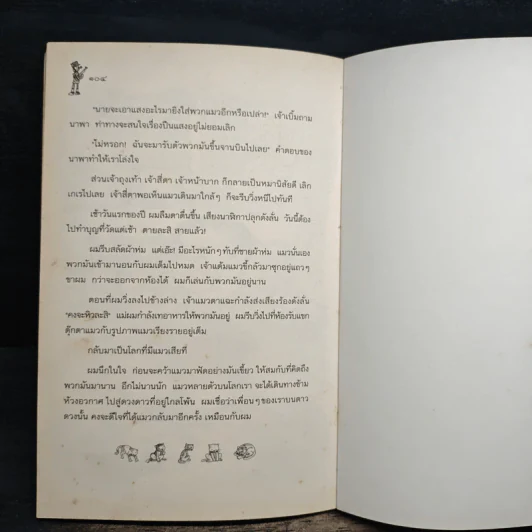 ๑๐๔
"นายจะเอาแสงอะไรมายิงใส่พวกแมวอีกหรือเปล่า!" เจ้าเบิ้มถาม
นาพา ท่าทางจะสนใจเรื่องปืนแสงอยู่ไม่ยอมเลิก
"ไม่หรอก! ฉันจะมารับตัวพวกมันขึ้นจานบินไปเลย" คำตอบของ
นาพาทำให้เราโล่งใจ
ส่วนเจ้าถุงเท้า เจ้าสี่ตา เจ้าหน้าบาก ก็กลายเป็นหมานิสัยดี เลิก
เกเรไปเลย เจ้าสี่ตาพอเห็นแมวเดินมาใกล้ๆ ก็จะรีบวิ่งหนีไปทันที
เช้าวันแรกของปี ผมลืมตาตื่นขึ้น เสียงนาฬิกาปลุกดังลั่น วันนี้ต้อง
ไปทำบุญที่วัดแต่เช้า ตายละสิ สายแล้ว!
ผมรีบสลัดผ้าห่ม แต่เอ๊ะ! มีอะไรหนักๆ ทับที่ชายผ้าห่ม แมวนั่นเอง
พวกมันเข้ามานอนกับผมเต็มไปหมด เจ้าแต้มแมวขี้กลัวมาซุกอยู่แถวๆ
ขาผม กว่าจะออกจากห้องได้ ผมก็เล่นกับพวกมันอยู่นาน
ตอนที่ผมวิ่งลงไปชั้นล่าง เจ้าแมวดาแฉะกำลังส่งเสียงร้องดังลั่น
'คงจะหิวละสิ' แม่ผมกำลังเทอาหารให้พวกมันอยู่ ผมรีบวิ่งไปที่ห้องรับแขก
ตุ๊กตาแมวกับรูปภาพแมวเรียงรายอยู่เต็ม
กลับมาเป็นโลกที่มีแมวเสียที
ผมนึกในใจ ก่อนจะคว้าแมวมาฟัดอย่างมันเขี้ยว ให้สมกับที่คิดถึง
พวกมันมานาน อีกไม่นานนัก แมวหลายตัวบนโลกเรา จะได้เดินทางข้าม
ห้วงอวกาศ ไปสู่ดวงดาวที่อยู่ไกลโพ้น ผมเชื่อว่าเพื่อนๆ ของเราบนดาว
ดวงนั้น คงจะดีใจที่ได้แมวกลับมาอีกครั้ง เหมือนกับผม